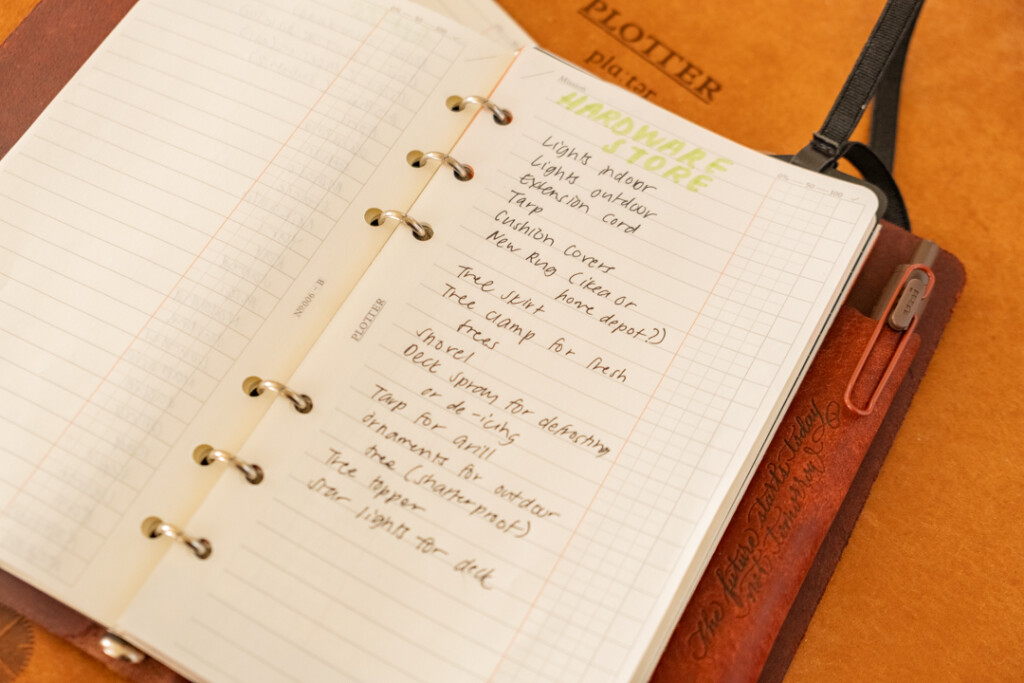 PLOTTER
plɑːtər
HARDWARE
STORE
Lights indoor
Lights outdoor
Extension cord
Tarp
Cushion covers
New Rug (ikea or
home depot?)
Tree skirt
Tree clamp for fresh
trees
Shovel
Deck spray for defrosting
or de-icing
Tarp for grill
ornaments for outdoor
tree (shatterproof)
Tree topper
Star lights for deck
PLOTTER
No.006-B
The future starts today
not tomorrow